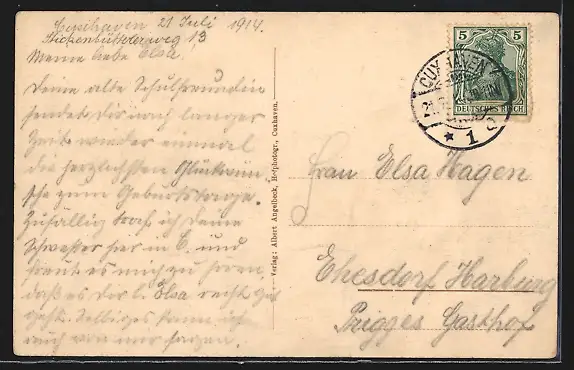 Cuxhaven 21 Juli 1914.
Stickenbüttelerweg 13
Meine liebe Elsa.
Deine alte Schulfreundin
sendet dir nach langer
Zeit wieder einmal
die herzlichsten Glückwün-
sche zum Geburtstage.
Zufällig traf ich deine
Schwester hier in C. und
freut es mich zu hören,
daß es dir l. Elsa recht gut
geht. Selbiges kann ich
auch von mir sagen.
Verlag: Albert Angelbeck, Hofphotogr., Cuxhaven.
5 5
DEUTSCHES REICH
CUXHAVEN
* 1 a
Frau Elsa Hagen
Ehesdorf Harburg
Prigges Gasthof